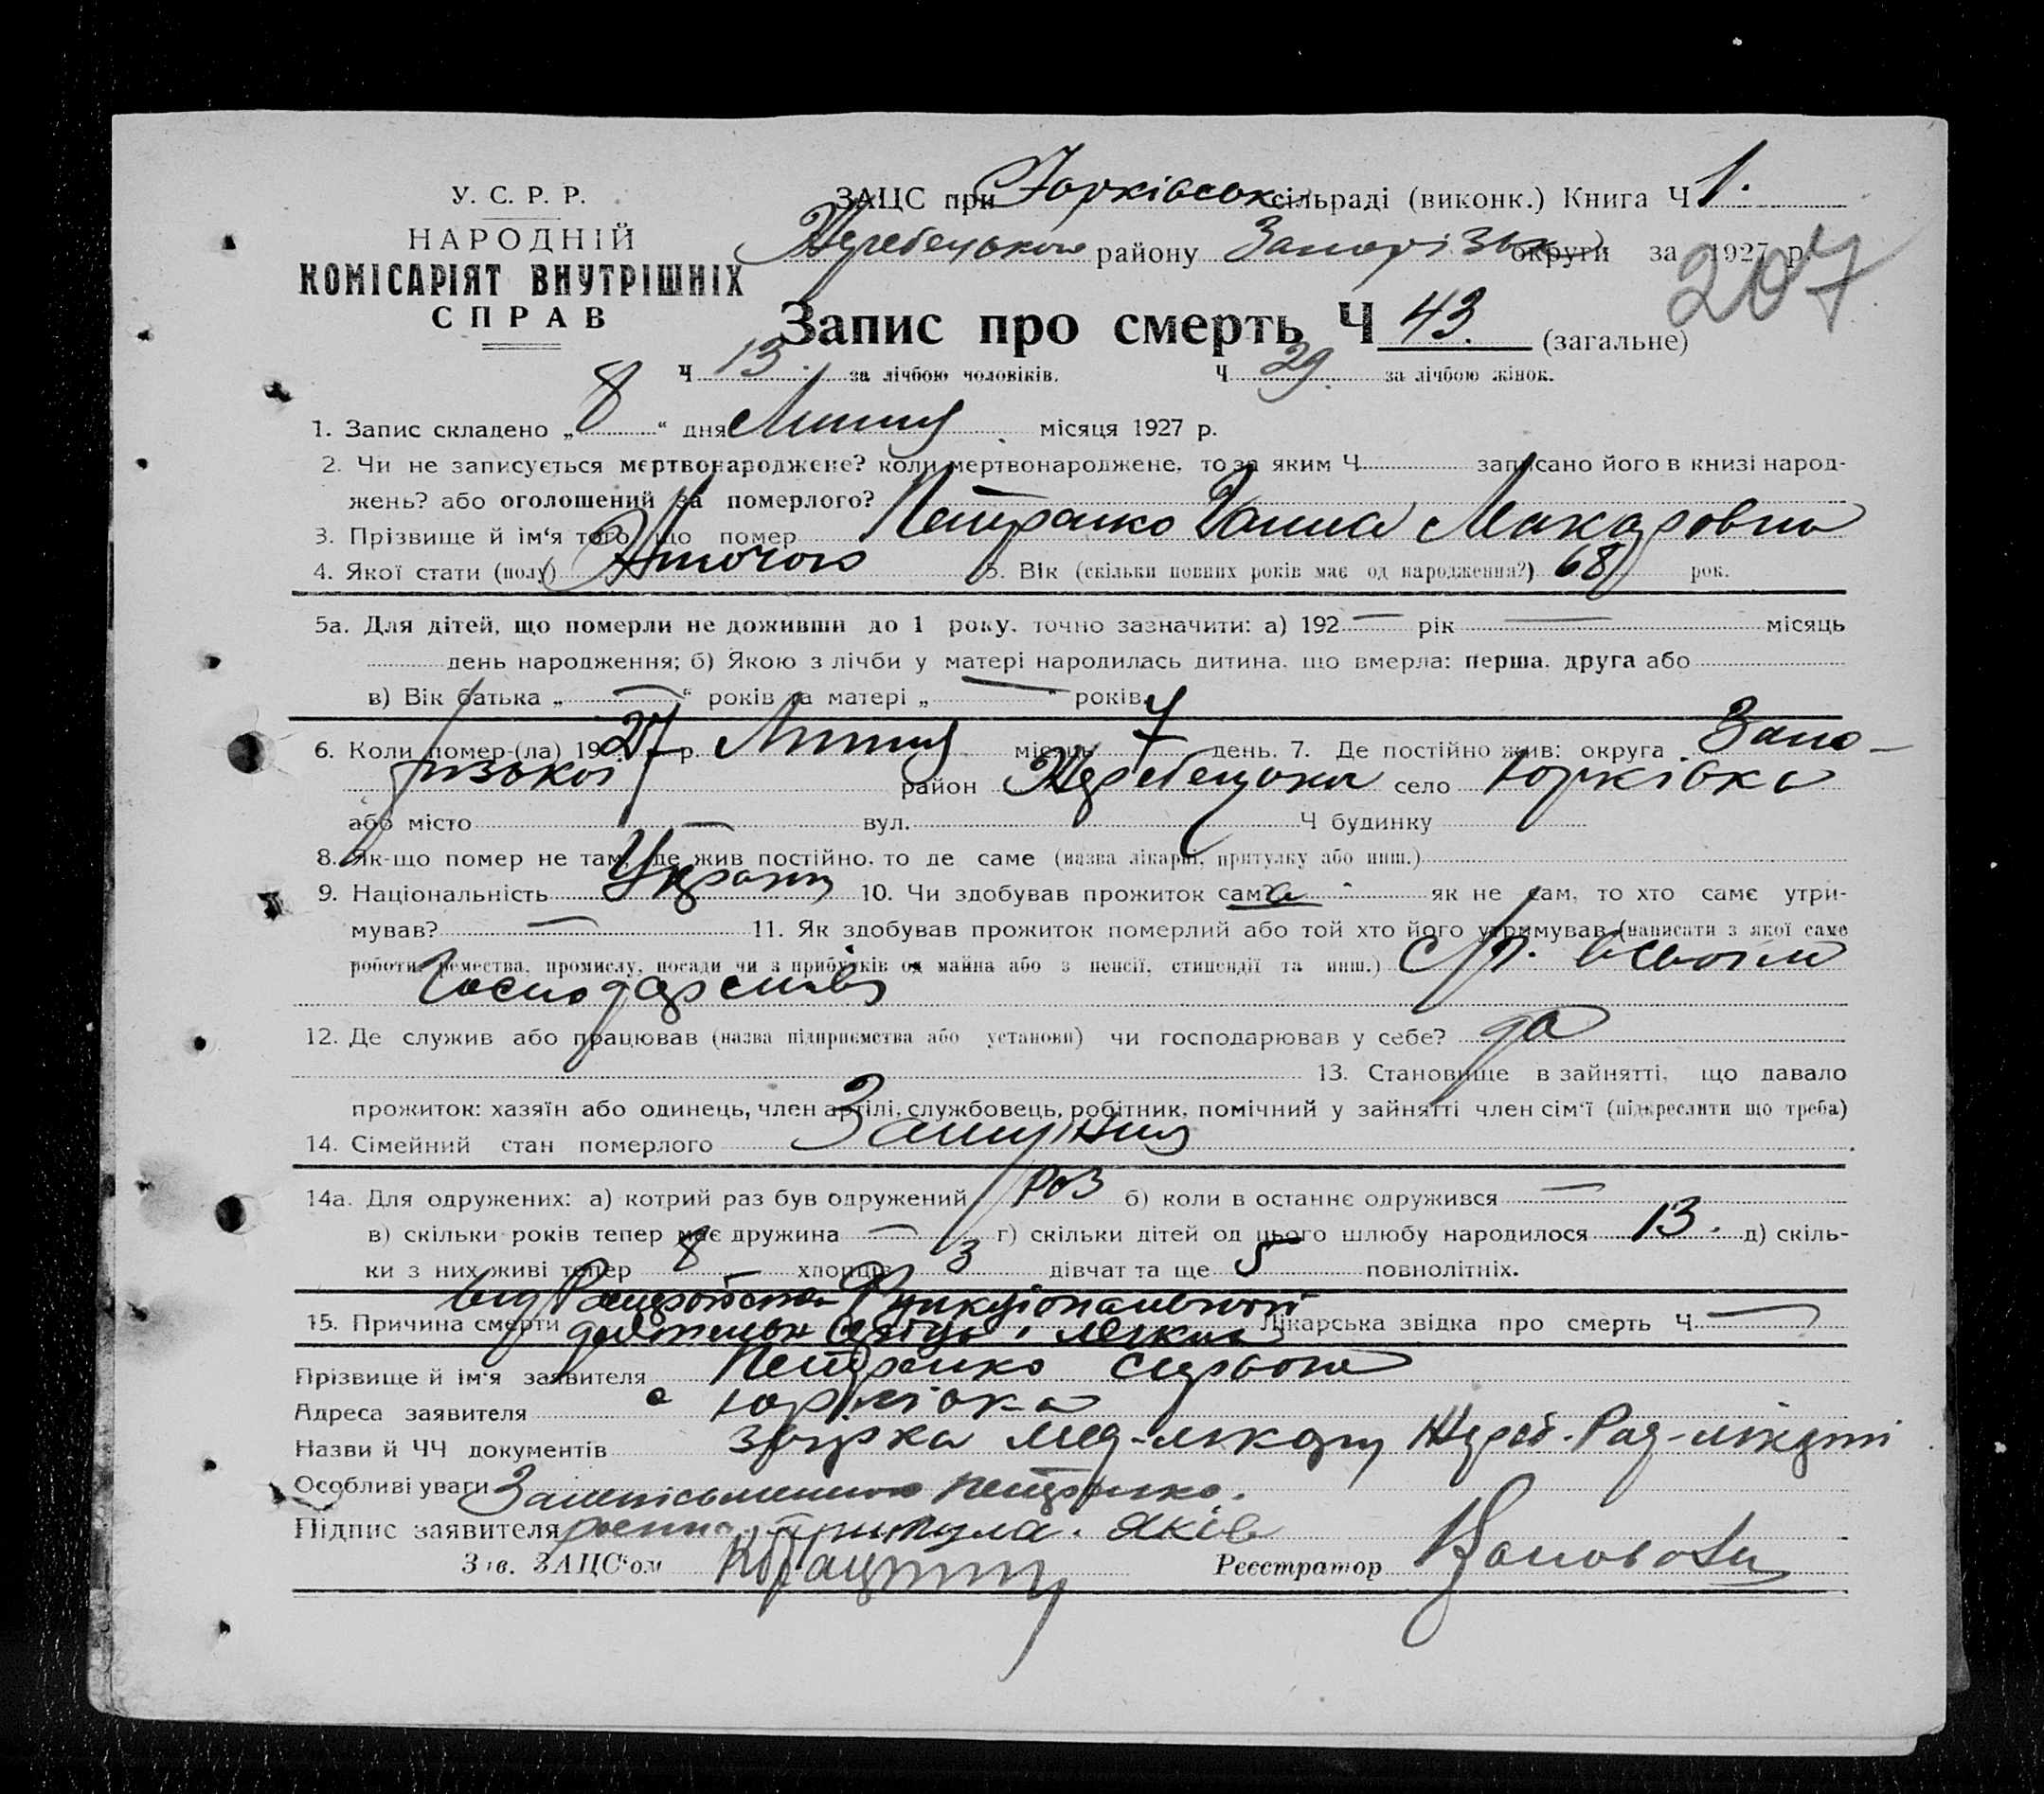 У. С. Р. Р.
НАРОДНІЙ
КОМІСАРІЯТ ВНУТРІШНІХ
СПРАВ
ЗАЦС при Юрківськ сільраді (виконк.) Книга Ч 1.
Жеребецького району Запорізьк округи за 1927 р.
207
Запис про смерть Ч 43. (загальне)
Ч 13. за лічбою чоловіків. Ч 29. за лічбою жінок.
1. Запис складено „ 8 “ дня Липня місяця 1927 р.
2. Чи не записується мертвонароджене? коли мертвонароджене, то за яким Ч записано його в книзі народ-
жень? або оголошений за померлого?
3. Прізвище й ім‘я того, що помер Петренко Ганна Макаровна
4. Якої стати (полу) Жіночою 5. Вік (скільки повних років має од народження?) 68 рок.
5а. Для дітей, що померли не доживши до 1 року, точно зазначити: а) 192 — рік — місяць
день народження; б) Якою з лічби у матері народилась дитина, що вмерла: перша, друга або
в) Вік батька „ — “ років та матері „ — “ років.
6. Коли помер-(ла) 1927 р. Липня місяць 7 день. 7. Де постійно жив: округа Запо-
ризької район Жеребецький село Юрківка
або місто вул. Ч будинку
8. Як-що помер не там, де жив постійно, то де саме (назва лікарні, притулку або инш.)
9. Національність 10. Чи здобував прожиток сам а як не сам, то хто саме утри-
мував? — 11. Як здобував прожиток померлий або той хто його утримував (написати з якої саме
роботи, ремества, промислу, посади чи з прибутків од майна або з пенсії, стипендії та инш.) С/г. в своїм
Господарстві
12. Де служив або працював (назва підприємства або установи) чи господарював у себе? да
13. Становище в зайнятті, що давало
прожиток: хазяїн або одинець, член артілі, службовець, робітник, помічний у зайнятті член сім‘ї (підкреслити що треба)
14. Сімейний стан померлого Замужня
14а. Для одружених: а) котрий раз був одружений 1 раз б) коли в останнє одружився —
в) скільки років тепер має дружина — г) скільки дітей од цього шлюбу народилося 13. д) скіль-
ки з них живі тепер 8 хлопців 3 дівчат та ще 5 повнолітніх.
від Функціональної
15. Причина смерти Лікарська звідка про смерть Ч —
Прізвище й ім‘я заявителя Петренко
Адреса заявителя с Юрківка
Назви й ЧЧ документів
Особливі уваги За неписьменного Петренко.
Підпис заявителя Яків
Зав. ЗАЦС‘ом
Реєстратор